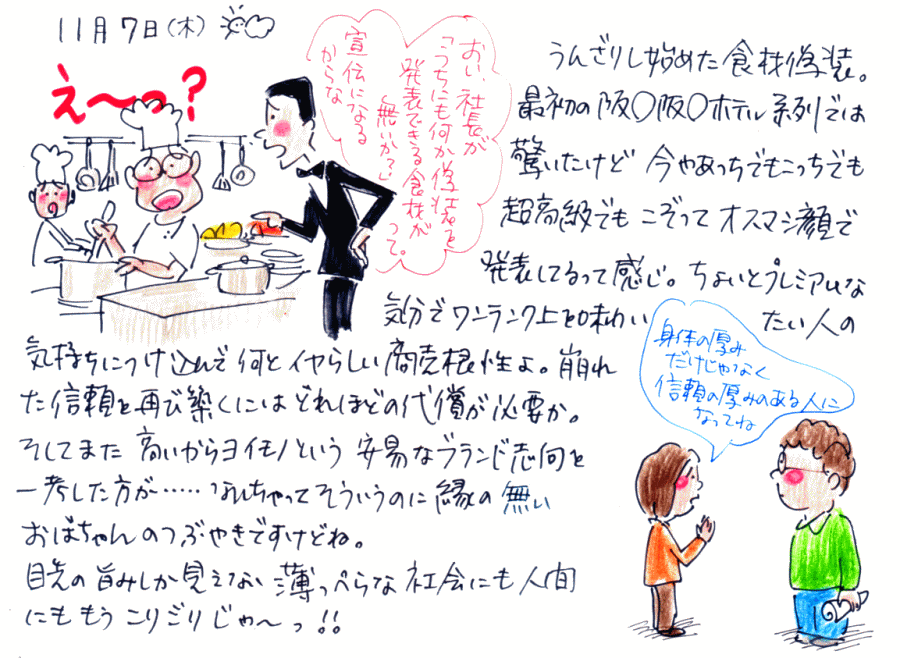 11月7日(木)
え〜っ?
おい、社長が
「うちにも何か偽装を
発表できる食材が
無いか?」って。
宣伝になる
からな
うんざりし始めた食材偽装。
最初の阪〇阪〇ホテル系列では
驚いたけど 今やあっちでもこっちでも
超高級でも こぞって オスマシ顔で
発表してるって感じ。ちょいとプレミアムな
気分で ワンランク上を味わい たい人の
気持ちにつけ込んで 何と イヤらしい 商売根性よ。崩れ
た信頼を再び築くには どれほどの代償が必要か。
そしてまた 高いからヨイモノという 安易なブランド志向を
一考した方が…… なんちゃって そういうのに縁の無い
おばちゃんのつぶやきですけどね。
目先の旨みしか見えてない 薄っぺらな社会にも人間
にも もう こりごりじゃ〜っ!!
身体の厚み
だけじゃなく
信頼の厚みのある人に
なってね